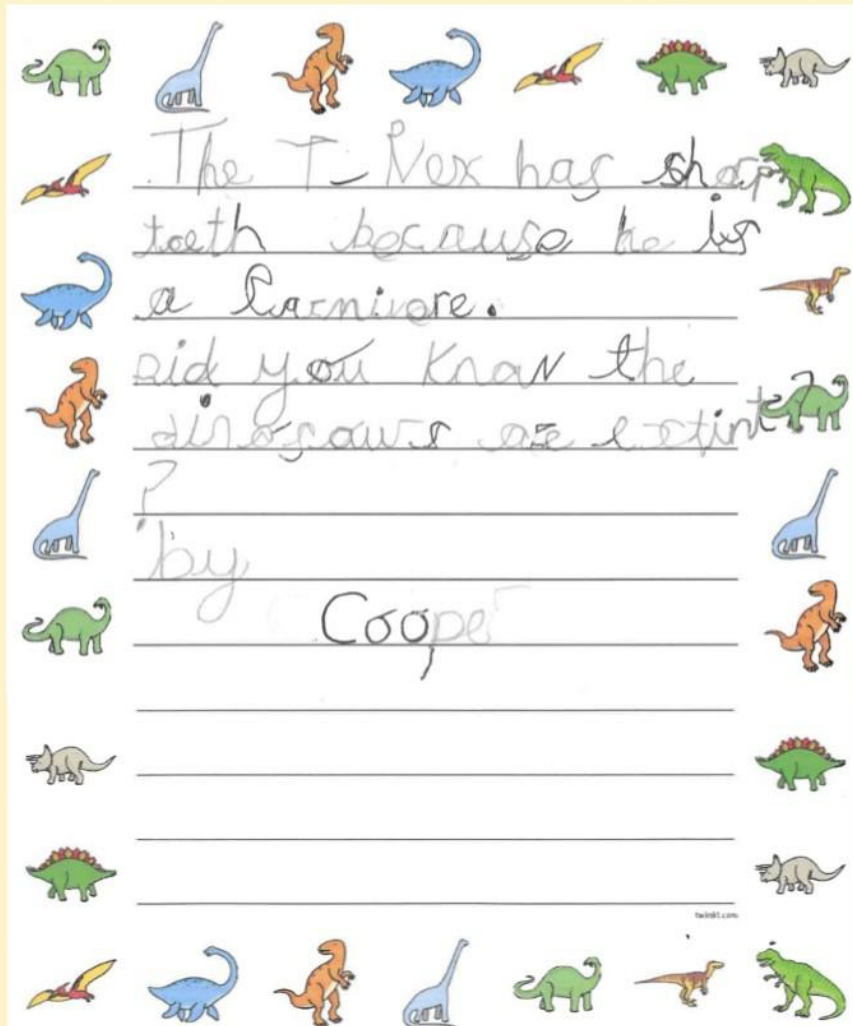 The T-Rex has sharp
teeth because he is
a carnivore.
Did you know the
dinosaurs are extint?
?
by
Cooper
twinkl.com